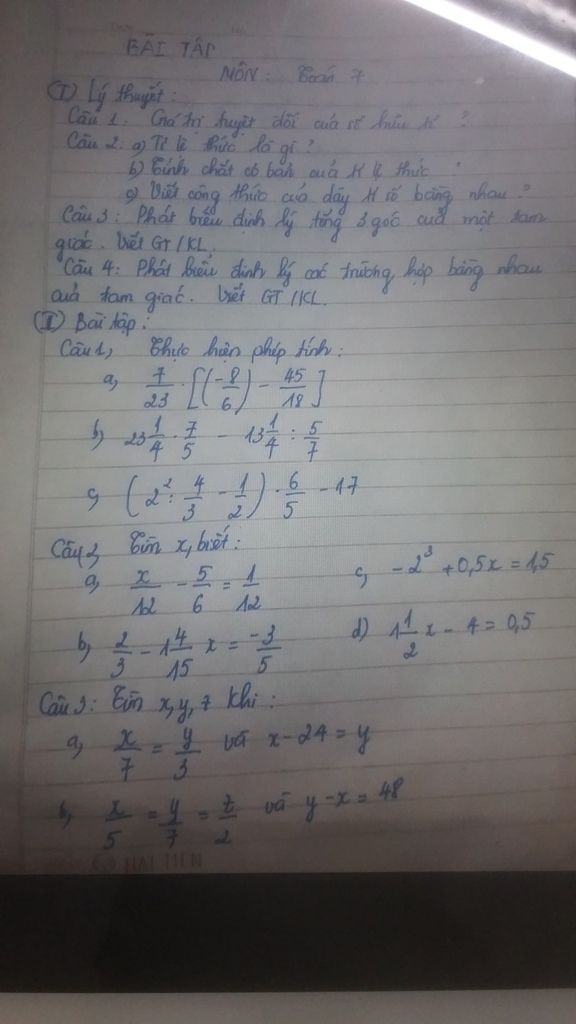 BÀI TẬP
MÔN: Toán 7
(I) Lý thuyết:
Câu 1. Giá trị tuyệt đối của số hữu tỉ?
Câu 2. a) Tỉ lệ thức là gì?
b) Tính chất cơ bản của tỉ lệ thức
c) Viết công thức của dãy tỉ số bằng nhau?
Câu 3: Phát biểu định lý tổng 3 góc của một tam
giác. Viết GT/KL.
Câu 4: Phát biểu định lý các trường hợp bằng nhau
của tam giác. Viết GT/KL.
(II) Bài tập:
Câu 1, Thực hiện phép tính:
a, 7/23 · [(-8/6) - 45/18]
b) 23 1/4 · 7/5 - 13 1/4 : 5/7
c, (2² : 4/3 - 1/2) · 6/5 - 17
Câu 2, Tìm x, biết:
a, x/12 - 5/6 = 1/12 c, -2³ + 0,5x = 1,5
b, 2/3 - 1 4/15 x = -3/5 d) 1 1/2 x - 4 = 0,5
Câu 3: Tìm x, y, z khi:
a, x/7 = y/3 và x - 24 = y
b, x/5 = y/7 = z/2 và y - x = 48
HAI TIEN